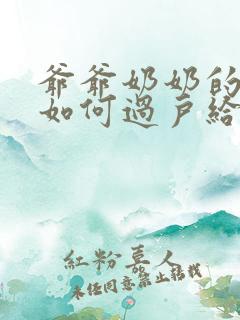 爷爷奶奶的
如何過户給
紅粉喜人
未经同意禁止转载